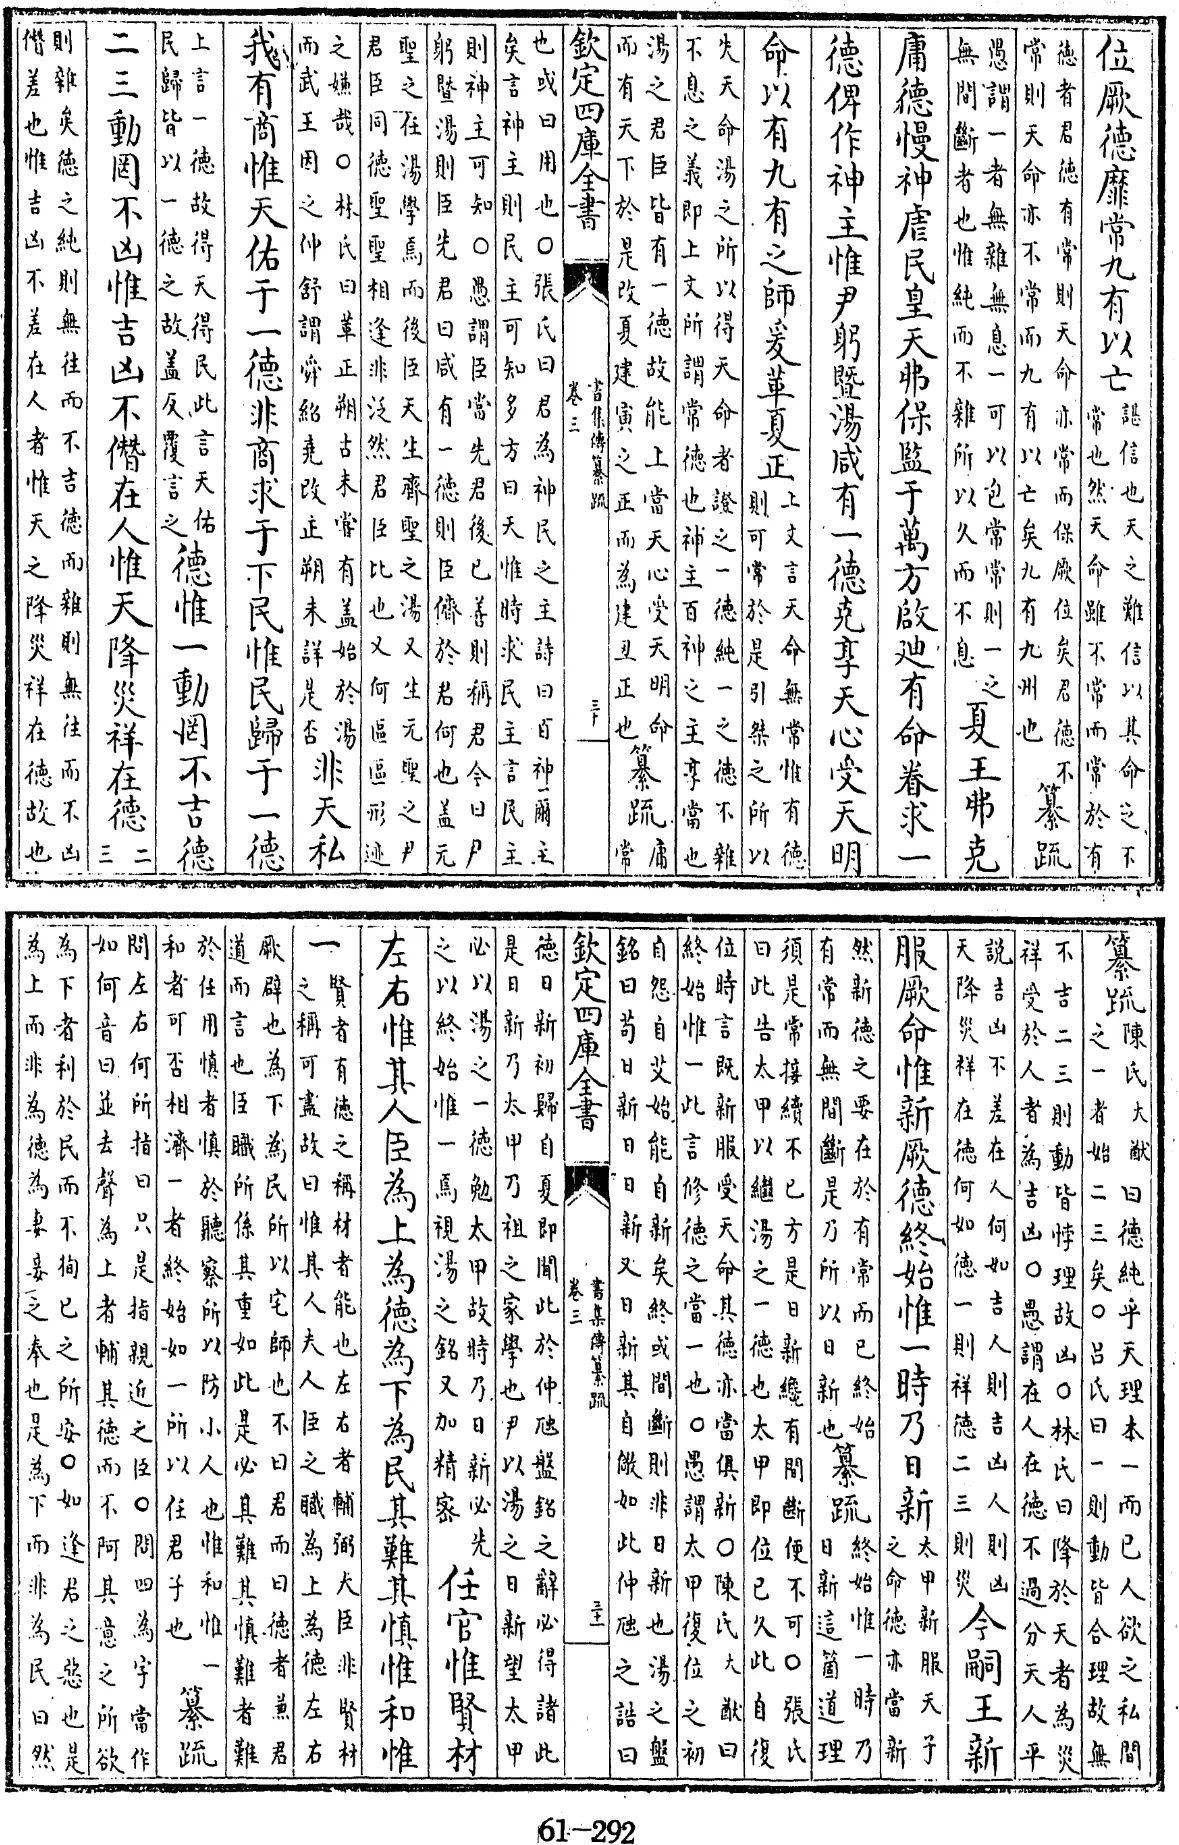 位厥德靡常九有以亡
諶信也天之難信以其命之不
常也然天命雖不常而常於有
德者君德有常則天命亦常而保厥位矣君德不
常則天命亦不常而九有以亡矣九有九州也
纂疏
愚謂一者無雜無息一可以包常常則一之
無間斷者也惟純而不雜所以久而不息
夏王弗克
庸德慢神虐民皇天弗保監于萬方啟廸有命眷求一
德俾作神主惟尹躬暨湯咸有一德克享天心受天明
命以有九有之師爰革夏正
上文言天命無常惟有德
則可常於是引桀之所以
失天命湯之所以得天命者證之一德純一之德不雜
不息之義即上文所謂常德也神主百神之主享當也
湯之君臣皆有一德故能上當天心受天明命
而有天下於是改夏建寅之正而為建丑正也
纂疏
庸
常
欽定四庫全書
書集傳纂疏
卷三
三十
也或曰用也○張氏曰君為神民之主詩曰百神爾主
矣言神主則民主可知多方曰天惟時求民主言民主
則神主可知○愚謂臣當先君後已善則稱君今曰尹
躬暨湯則臣先君曰咸有一德則臣儕於君何也盖元
聖之在湯學焉而後臣天生齊聖之湯又生元聖之尹
君臣同德聖聖相逢非泛然君臣比也又何區區形迹
之嫌哉○林氏曰革正朔古未嘗有盖始於湯
而武王因之仲舒謂舜紹堯改正朔未詳是否
非天私
我有商惟天佑于一德非商求于下民惟民歸于一德
上言一德故得天得民此言天佑
民歸皆以一德之故盖反覆言之
德惟一動罔不吉德
二三動罔不凶惟吉凶不僭在人惟天降災祥在德
二
三
則雜矣德之純則無往而不吉德而雜則無往而不凶
僭差也惟吉凶不差在人者惟天之降災祥在德故也
纂疏
陳氏大猷曰德純乎天理本一而已人欲之私間
之一者始二三矣○呂氏曰一則動皆合理故無
不吉二三則動皆悖理故凶○林氏曰降於天者為災
祥受於人者為吉凶○愚謂在人在德不過分天人平
說吉凶不差在人何如吉人則吉凶人則凶
天降災祥在德何如德一則祥德二三則災
今嗣王新
服厥命惟新厥德終始惟一時乃日新
太甲新服天子
之命德亦當新
然新德之要在於有常而已終始
有常而無間斷是乃所以日新也
纂疏
終始惟一時乃
日新這箇道理
須是常接續不已方是日新纔有間斷便不可○張氏
曰此告太甲以繼湯之一德也太甲即位已久此自復
位時言既新服受天命其德亦當俱新○陳氏大猷曰
終始惟一此言修德之當一也○愚謂太甲復位之初
自怨自艾始能自新矣終或間斷則非日新也湯之盤
銘曰苟日新日日新又日新其自儆如此仲虺之誥曰
欽定四庫全書
書集傳纂疏
卷三
三十一
德日新初歸自夏即聞此於仲虺盤銘之辭必得諸此
是日新乃太甲乃祖之家學也尹以湯之日新望太甲
必以湯之一德勉太甲故時乃日新必先
之以終始惟一焉視湯之銘又加精宻
任官惟賢材
左右惟其人臣為上為德為下為民其難其慎惟和惟
一
賢者有德之稱材者能也左右者輔弼大臣非賢材
之稱可盡故曰惟其人夫人臣之職為上為德左右
厥辟也為下為民所以宅師也不曰君而曰德者兼君
道而言也臣職所係其重如此是必其難其慎難者難
於任用慎者慎於聽察所以防小人也惟和惟一
和者可否相濟一者終始如一所以任君子也
纂疏
問左右何所指曰只是指親近之臣○問四為字當作
如何音曰並去聲為上者輔其德而不阿其意之所欲
為下者利於民而不徇已之所安○如逢君之惡也是
為上而非為德為妻妾之奉也是為下而非為民曰然
61-292